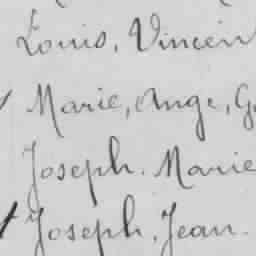 Louis, Vincen
Marie, Ange, G
Joseph. Marie
Joseph, Jean.